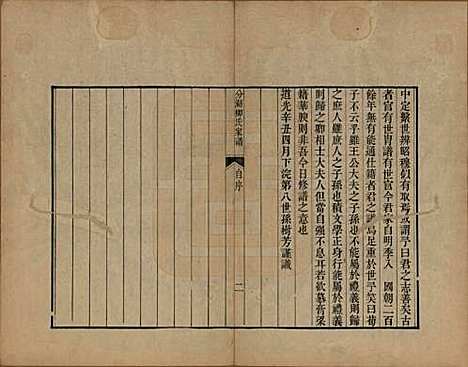 中定繫世辨昭穆似有取焉或謂予曰君之志善矣古
者官有世冑譜有世官今君家自明季入　國朝二百
餘年無有能通仕籍者君之譜烏足重於世予笑曰荀
子不云乎雖王公大夫之子孫也不能屬於禮義則歸
之庶人雖庶人之子孫也積文學正身行能屬於禮義
則歸之卿相士大夫人但當自强不息若欲慕膏粱
籍華腴則非吾今日修譜之意也
道光辛丑四月下浣第八世孫樹芳謹識
分湖柳氏家譜
自序
二